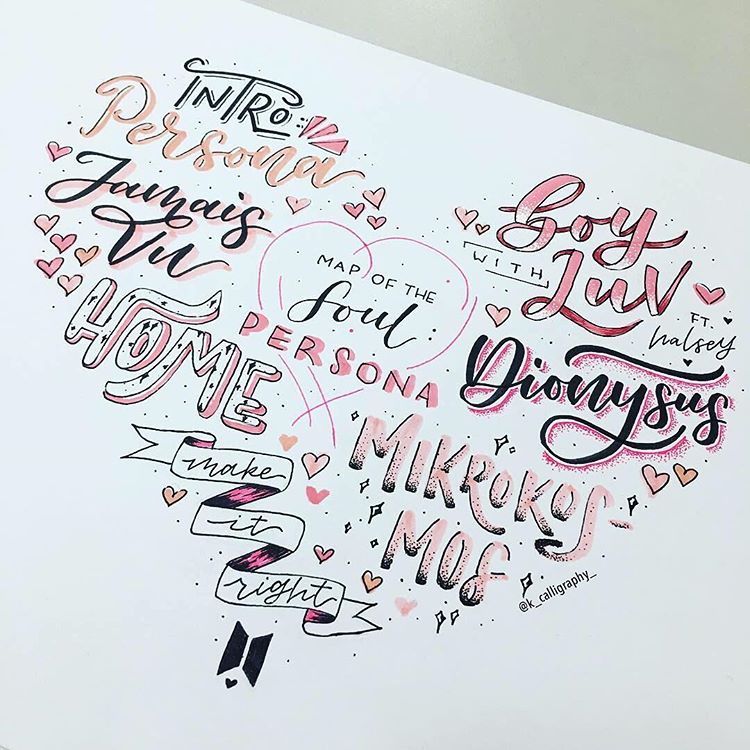 INTRO:
Persona
Jamais
Vu
HOME
make
it
right
MAP OF THE
Soul:
PERSONA
Boy
WITH
LUV
FT.
halsey
Dionysus
MIKROKOS-
MOS
@k_calligraphy_